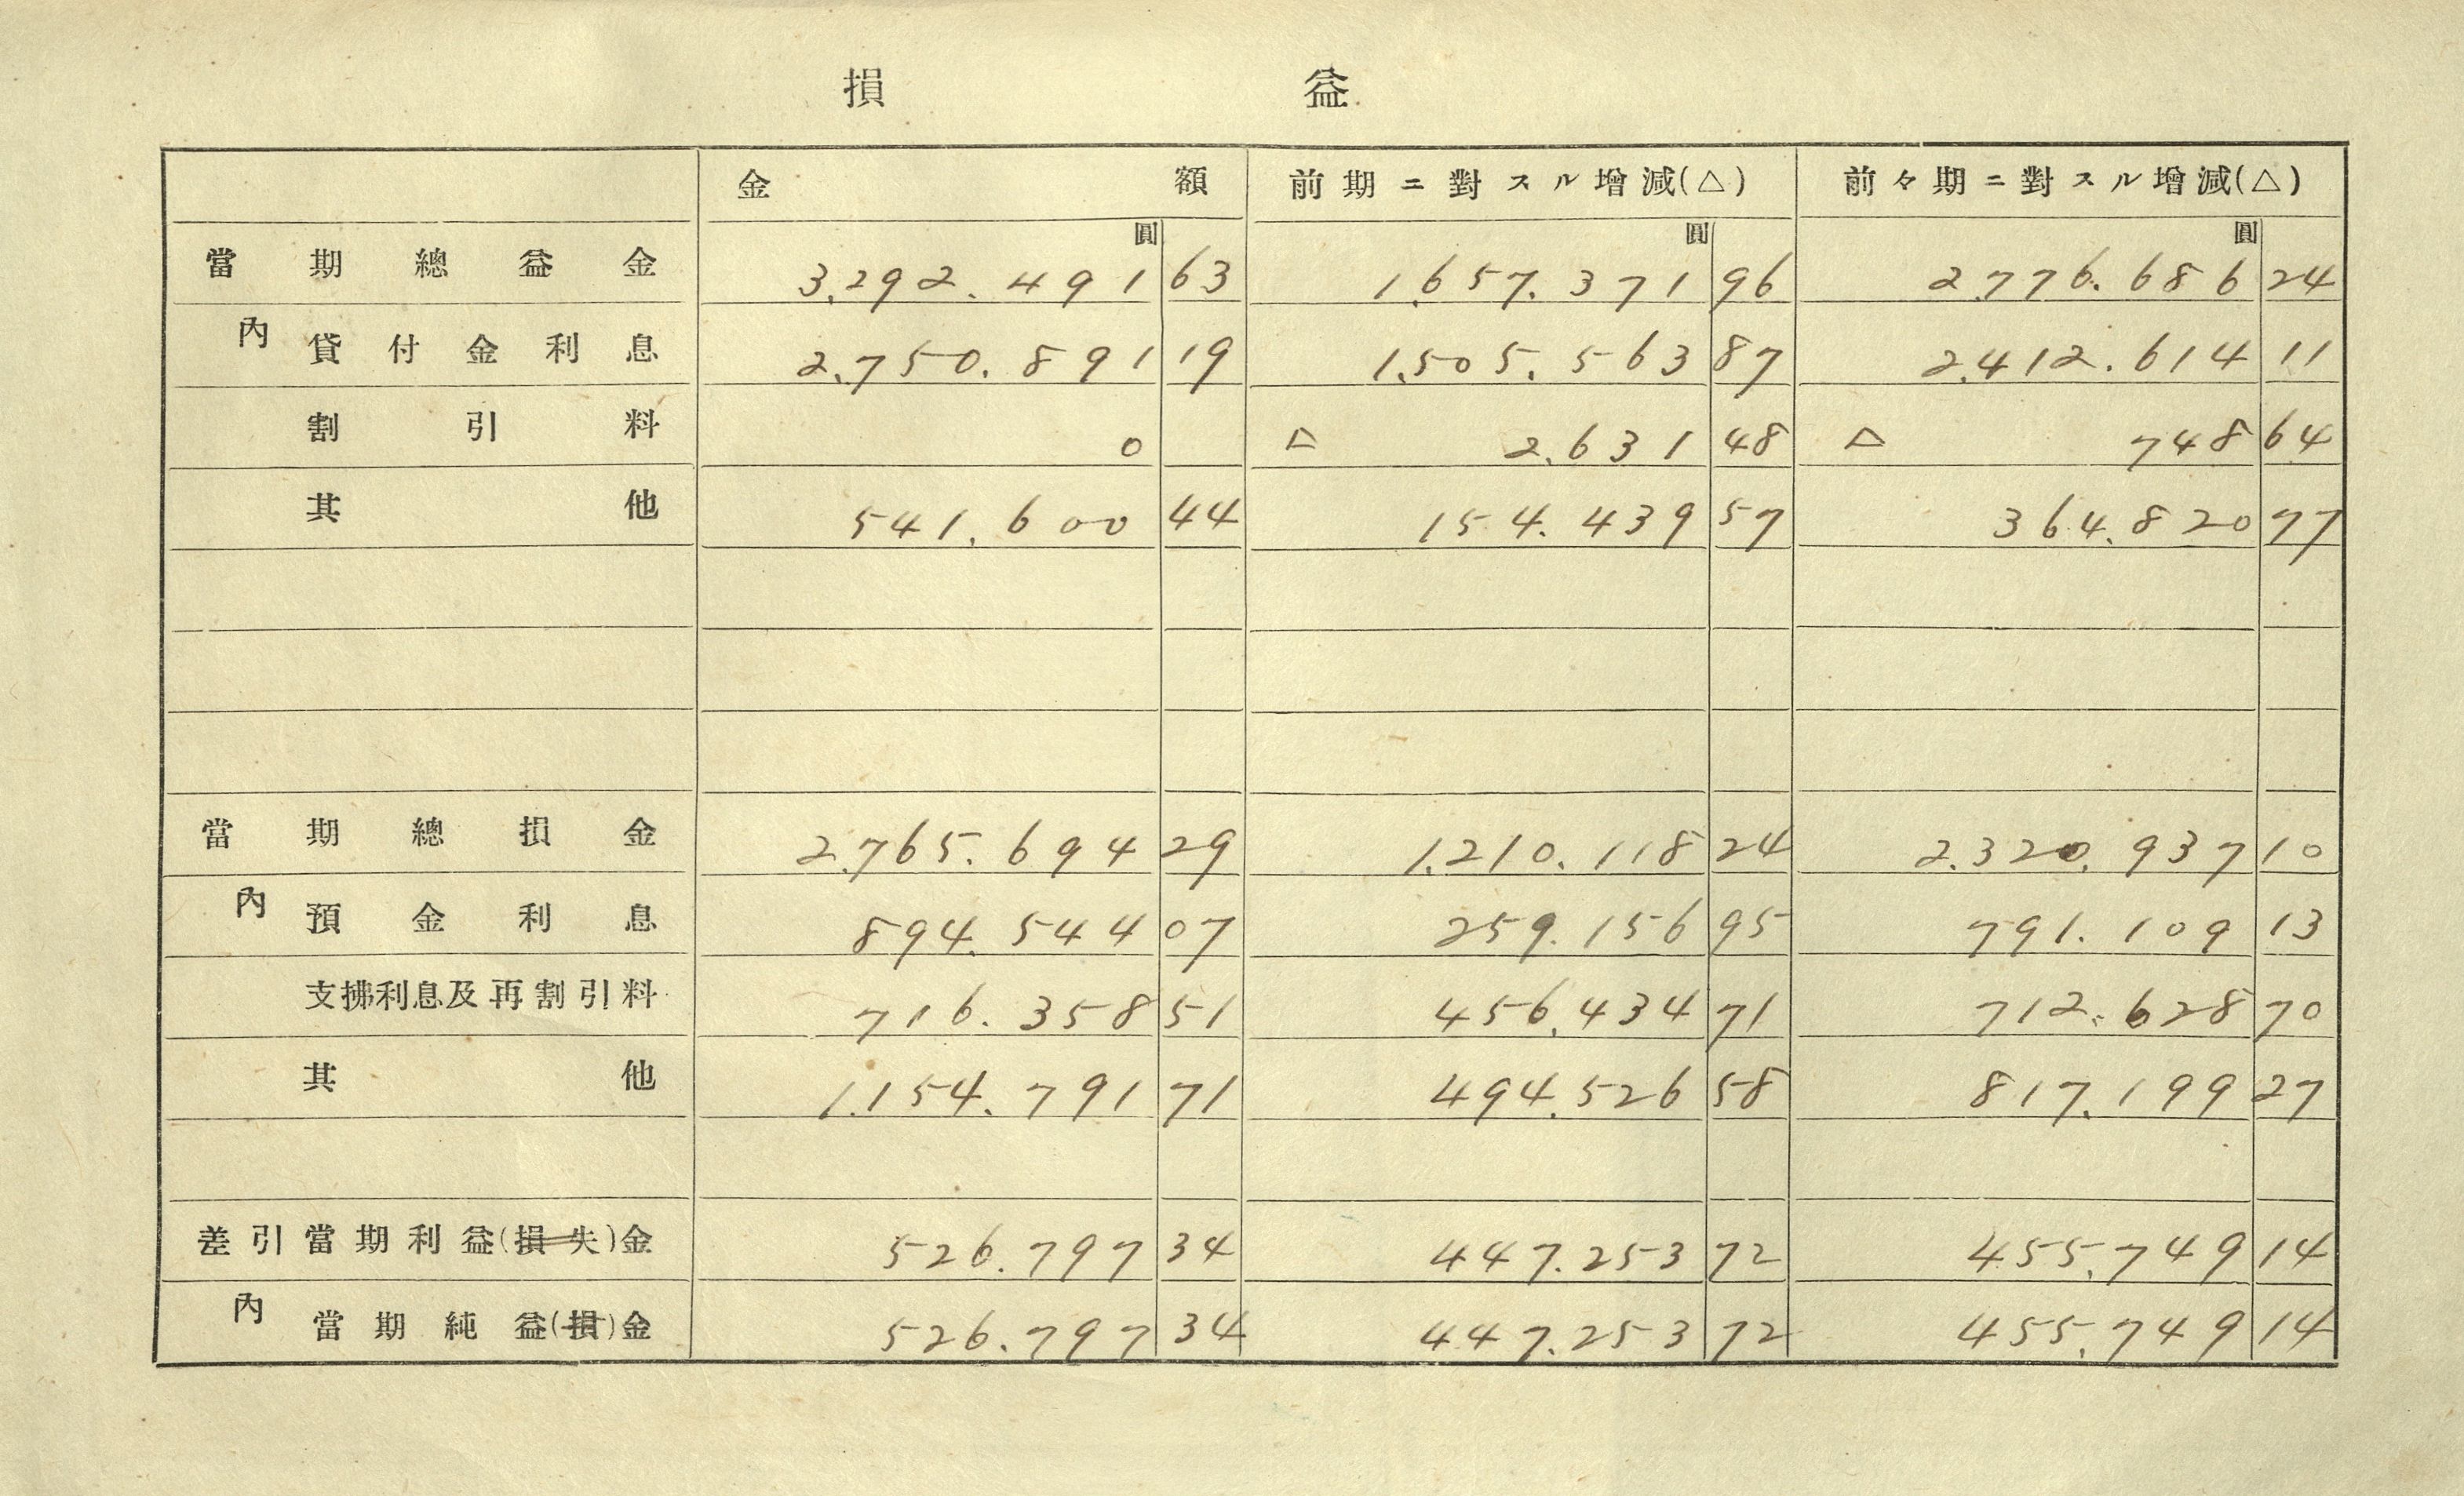 損 益
金 額 前期ニ對スル增減(△) 前々期ニ對スル增減(△)
圓 圓 圓
當期總益金 3.292.491 63 1.657.371 96 2.776.686 24
內 貸付金利息 2.750.891 19 1.505.563 87 2.412.614 11
割引料 0 △ 2.631 48 △ 748 64
其他 541.600 44 154.439 57 364.820 77
當期總損金 2.765.694 29 1.210.118 24 2.320.937 10
內 預金利息 894.544 07 259.156 95 791.109 13
支拂利息及再割引料 716.358 51 456.434 71 712.628 70
其他 1.154.791 71 494.526 58 817.199 27
差引當期利益(損失)金 526.797 34 447.253 72 455.749 14
內 當期純益(損)金 526.797 34 447.253 72 455.749 14